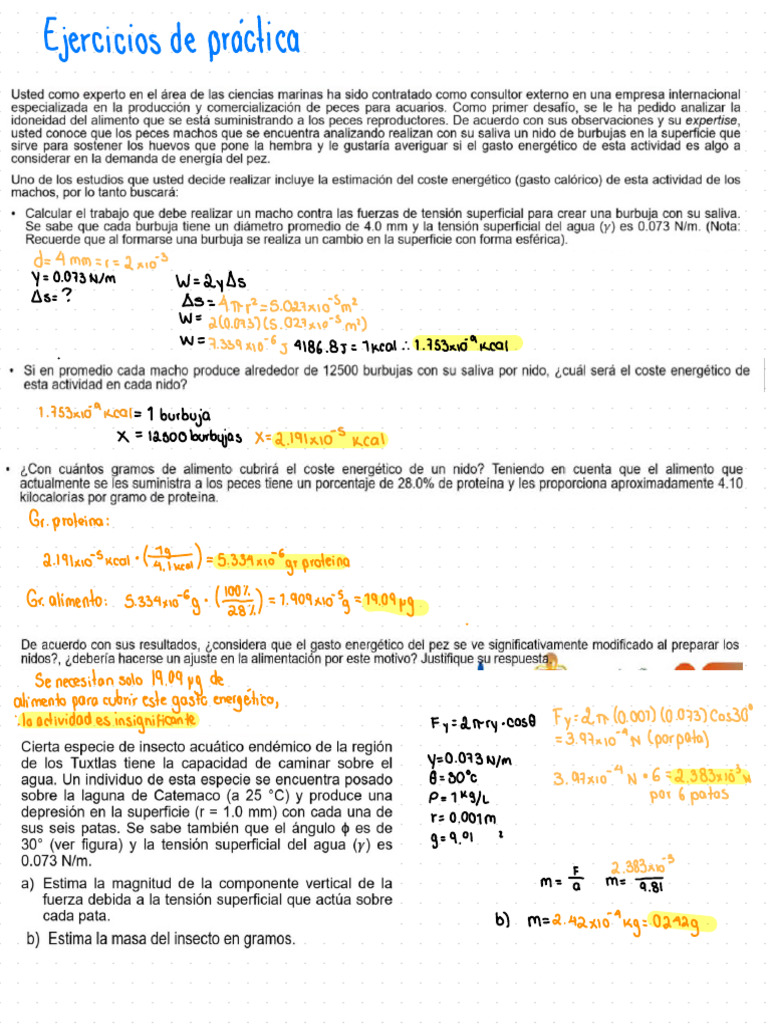 Ejercicios de práctica
Usted como experto en el área de las ciencias marinas ha sido contratado como consultor externo en una empresa internacional
especializada en la producción y comercialización de peces para acuarios. Como primer desafío, se le ha pedido analizar la
idoneidad del alimento que se está suministrando a los peces reproductores. De acuerdo con sus observaciones y su expertise,
usted conoce que los peces machos que se encuentra analizando realizan con su saliva un nido de burbujas en la superficie que
sirve para sostener los huevos que pone la hembra y le gustaría averiguar si el gasto energético de esta actividad es algo a
considerar en la demanda de energía del pez.
Uno de los estudios que usted decide realizar incluye la estimación del coste energético (gasto calórico) de esta actividad de los
machos, por lo tanto buscará:
• Calcular el trabajo que debe realizar un macho contra las fuerzas de tensión superficial para crear una burbuja con su saliva.
Se sabe que cada burbuja tiene un diámetro promedio de 4.0 mm y la tensión superficial del agua (γ) es 0.073 N/m. (Nota:
Recuerde que al formarse una burbuja se realiza un cambio en la superficie con forma esférica).
d= 4 mm = r = 2 x10⁻³
γ= 0.073 N/m
Δs= ?
W= 2γΔs
Δs= 4πr² = 5.027x10⁻⁵ m²
W= 2(0.073)(5.027x10⁻⁵ m²)
W= 7.339x10⁻⁶ J 4186.8 J = 1 kcal ∴ 1.753x10⁻⁹ kcal
• Si en promedio cada macho produce alrededor de 12500 burbujas con su saliva por nido, ¿cuál será el coste energético de
esta actividad en cada nido?
1.753x10⁻⁹ kcal = 1 burbuja
X = 12500 burbujas X= 2.191x10⁻⁵ kcal
• ¿Con cuántos gramos de alimento cubrirá el coste energético de un nido? Teniendo en cuenta que el alimento que
actualmente se les suministra a los peces tiene un porcentaje de 28.0% de proteína y les proporciona aproximadamente 4.10
kilocalorías por gramo de proteina.
Gr. proteina:
2.191x10⁻⁵ kcal · (1g / 4.1 kcal) = 5.334x10⁻⁶ gr proteina
Gr. alimento: 5.334x10⁻⁶ g · (100% / 28%) = 1.909x10⁻⁵ g = 19.09 µg
De acuerdo con sus resultados, ¿considera que el gasto energético del pez se ve significativamente modificado al preparar los
nidos?, ¿debería hacerse un ajuste en la alimentación por este motivo? Justifique su respuesta.
Se necesitan solo 19.09 µg de
alimento para cubrir este gasto energético,
∴ la actividad es insignificante
Cierta especie de insecto acuático endémico de la región
de los Tuxtlas tiene la capacidad de caminar sobre el
agua. Un individuo de esta especie se encuentra posado
sobre la laguna de Catemaco (a 25 °C) y produce una
depresión en la superficie (r = 1.0 mm) con cada una de
sus seis patas. Se sabe también que el ángulo ϕ es de
30° (ver figura) y la tensión superficial del agua (γ) es
0.073 N/m.
a) Estima la magnitud de la componente vertical de la
fuerza debida a la tensión superficial que actúa sobre
cada pata.
b) Estima la masa del insecto en gramos.
Fy= 2πrγ·cosθ
γ= 0.073 N/m
θ= 30°c
ρ= 1 kg/L
r= 0.001m
g= 9.01 ²
Fy= 2π(0.001)(0.073)Cos30°
= 3.97x10⁻⁴ N (por pata)
3.97x10⁻⁴ N · 6 = 2.383x10⁻³ N
por 6 patas
m= F/a m= 2.383x10⁻³ / 9.81
b) m= 2.42x10⁻⁴ kg = .0242g